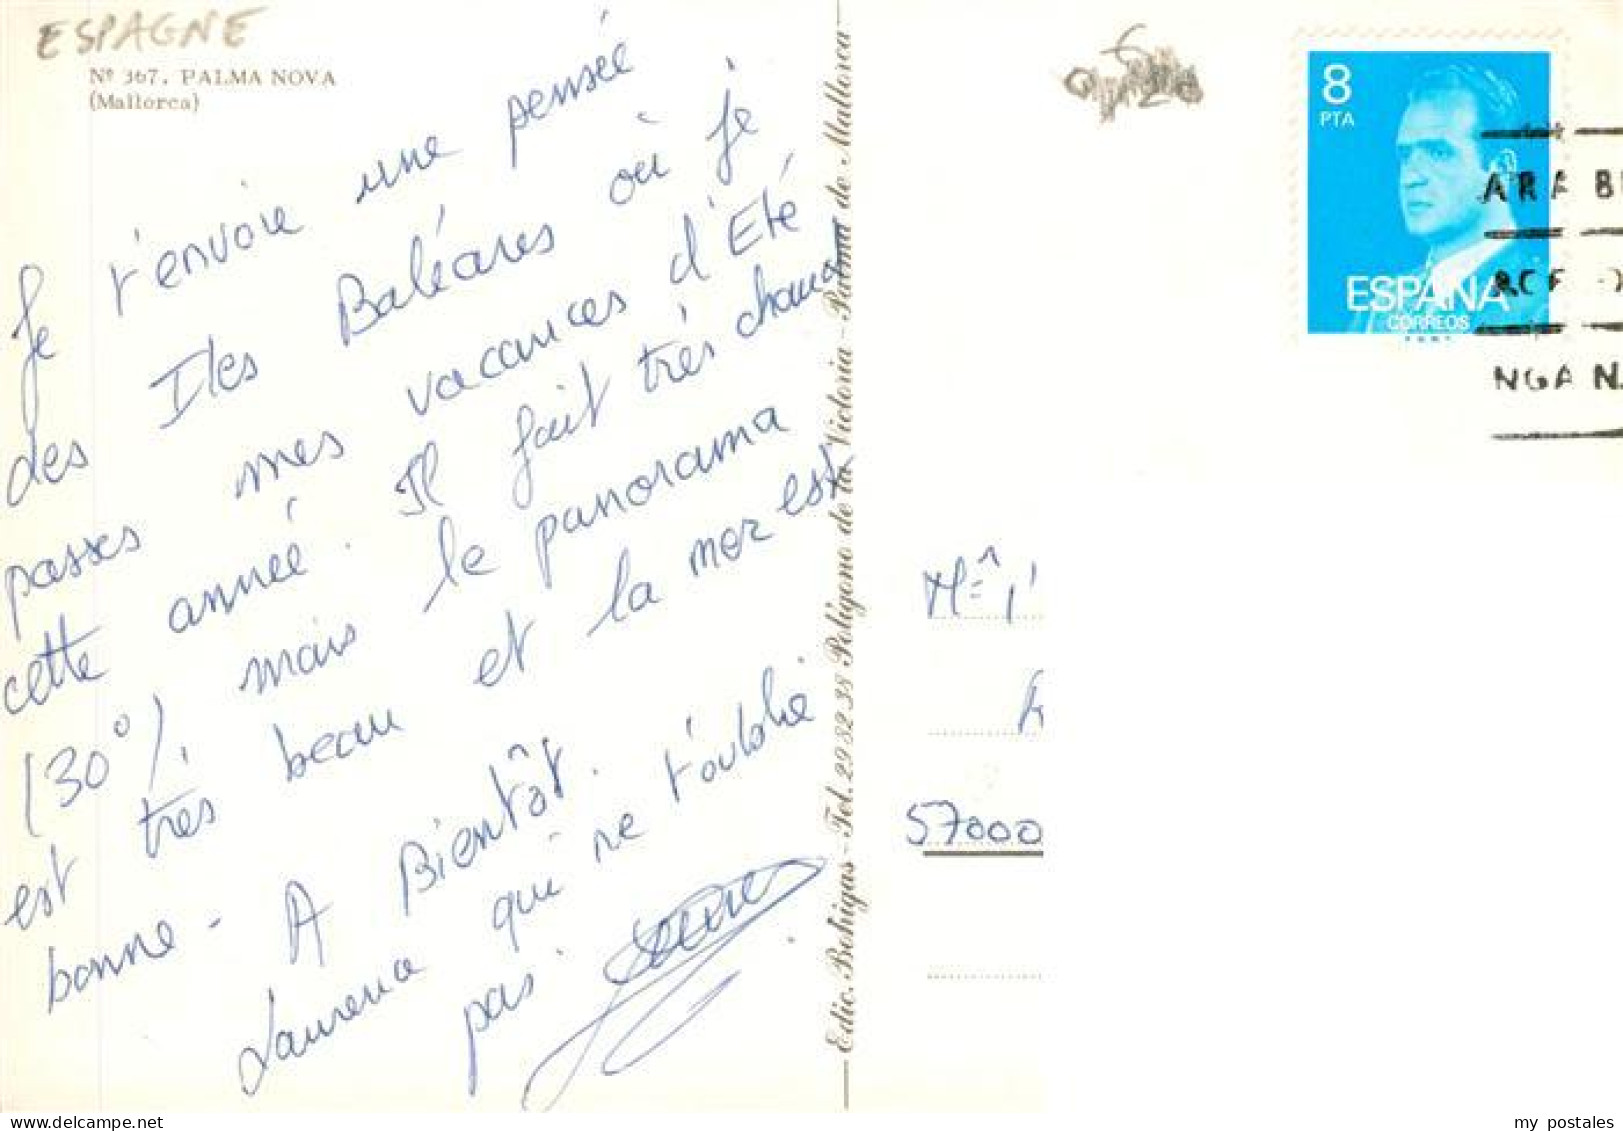 ESPAGNE
Nº 367. PALMA NOVA
(Mallorca)
Je t'envoie une pensée
des Iles Baléares où je
passes mes vacances d'Eté
cette année. Il fait très chaud
(30°), mais le panorama
est très beau et la mer est
bonne - A Bientôt.
Laurence qui ne t'oublie
pas.
Edic. Bohigas - Tel. 29 82 38 Polígono de la Victoria - Palma de Mallorca
8
PTA
ESPAÑA
CORREOS
ARA
NGA
57000
my postales